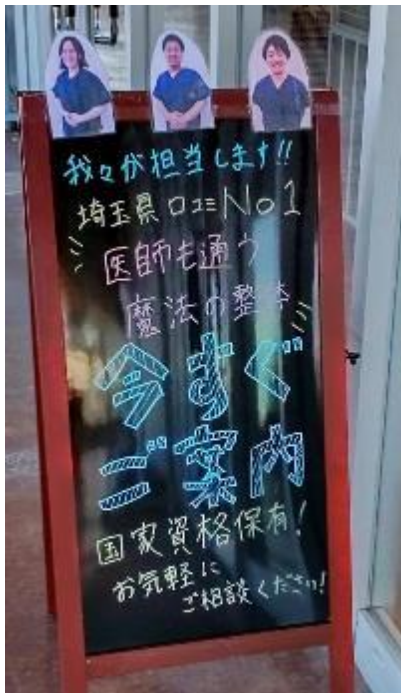 我々が担当します!!
埼玉県口コミNo1
医師も通う
魔法の整体
今すぐ
ご案内
国家資格保有!
お気軽に
ご相談ください!